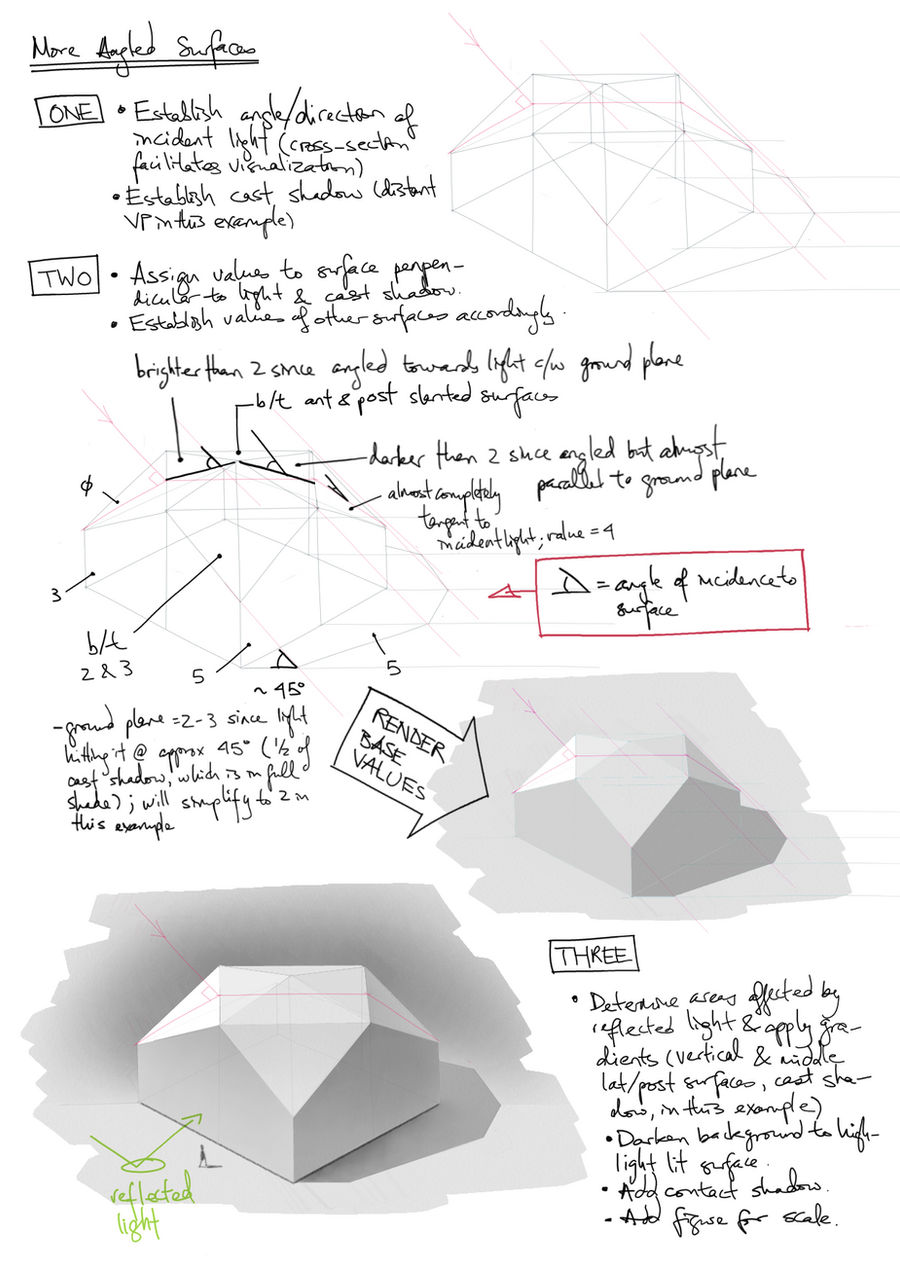 More Angled Surfaces
ONE
• Establish angle/direction of
incident light (cross-section
facilitates visualization)
• Establish cast shadow (distant
VP in this example)
TWO
• Assign values to surface perpen-
dicular to light & cast shadow.
• Establish values of other surfaces accordingly.
brighter than 2 since angled towards light c/w ground plane
b/t ant & post slanted surfaces
darker than 2 since angled but almost
parallel to ground plane
φ
almost completely
tangent to
incident light; value = 4
= angle of incidence to
surface
3
b/t
2 & 3
5
~ 45°
5
- ground plane = 2-3 since light
hitting it @ approx 45° (1/2 of
cast shadow, which is in full
shade); will simplify to 2 in
this example
RENDER
BASE
VALUES
THREE
• Determine areas affected by
reflected light & apply gra-
dients (vertical & middle
lat/post surfaces, cast sha-
dow, in this example)
• Darken background to high-
light lit surface.
• Add contact shadow.
• Add figure for scale.
reflected
light